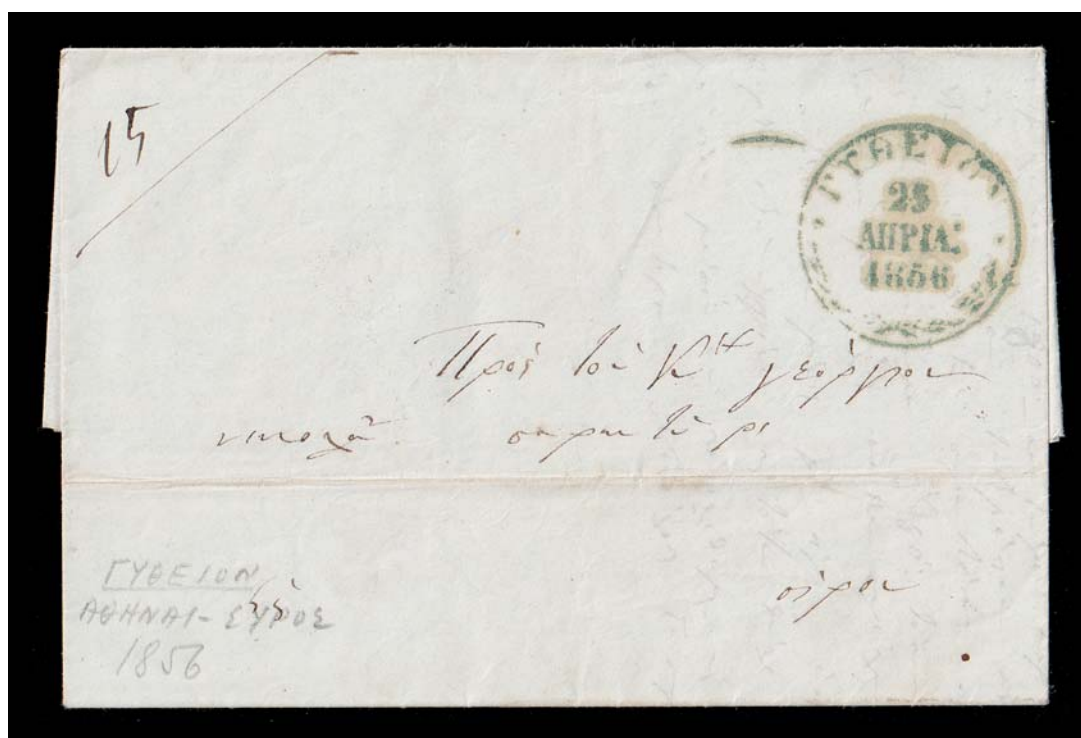 15
ΓΥΘΕΙΟΝ
25
ΑΠΡΙΛ:
1856
Πρός τον Κον γεόργιον
νικολά
σίρον
ΓΥΘΕΙΟΝ
ΑΘΗΝΑΙ - ΣΥΡΟΣ
1856